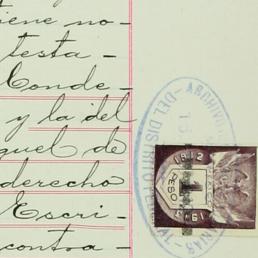 iene no-
testa-
Conde-
y la del
guel de
derecho
Escri-
contra-
ARCHIVO
DEL DISTRITO FE
15
1912 1913
1
PESO